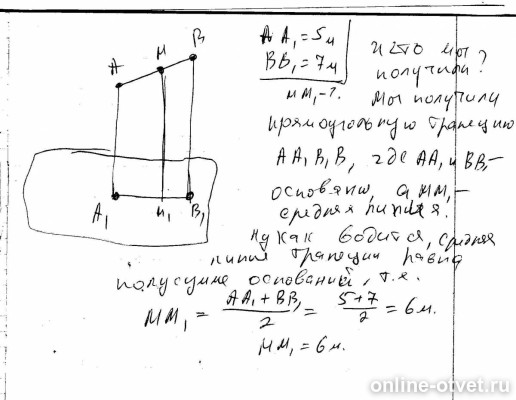 AA₁ = 5м
BB₁ = 7м
MM₁ - ?
И что мы
получили?
Мы получили
прямоугольную трапецию
AA₁B₁B, где AA₁ и BB₁ -
основания, а MM₁ -
средняя линия.
Ну как водится, средняя
линия трапеции равна
полусумме оснований, т.е.
MM₁ = (AA₁ + BB₁)/2 = (5+7)/2 = 6м.
MM₁ = 6м.
A
M
B
A₁
M₁
B₁
online-otvet.ru